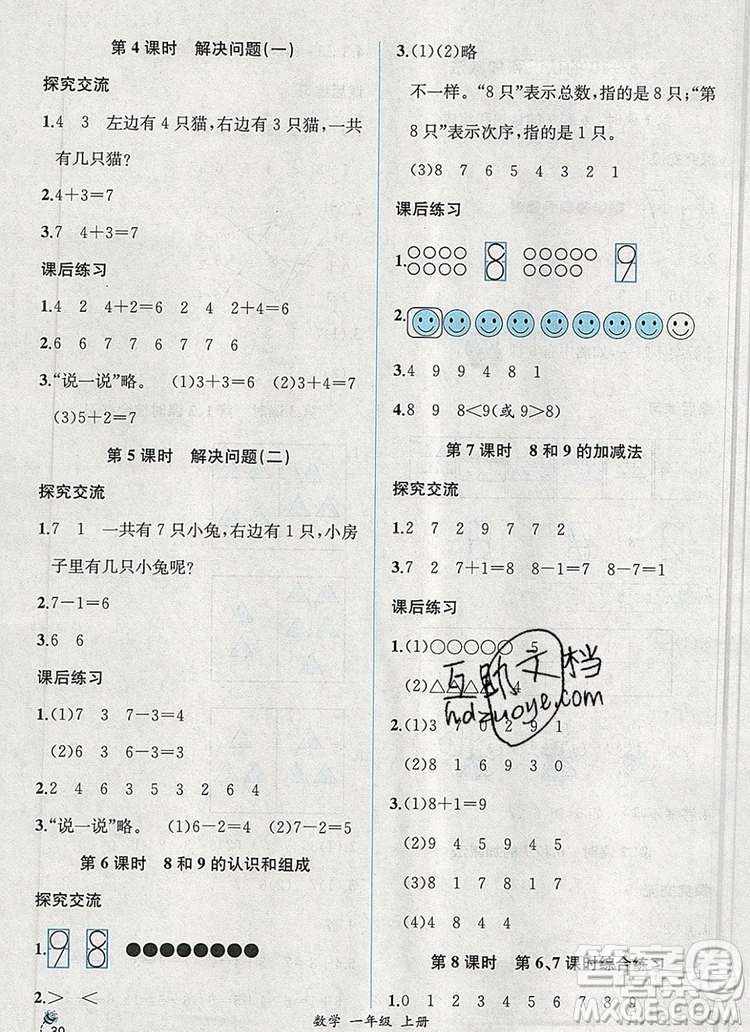 第4课时 解决问题(一)
探究交流
1.4 3 左边有4只猫,右边有3只猫,一共
有几只猫?
2.4+3=7
3.7 4+3=7
课后练习
1.4 2 4+2=6
2.6 7 6 7 7 6
3.“说一说”略。 (1)3+3=6 (2)3+4=7
(3)5+2=7
第5课时 解决问题(二)
探究交流
1.7 1 一共有7只小兔,右边有1只,小房
子里有几只小兔呢?
2.7-1=6
3.6 6
课后练习
1.(1)7 3 7-3=4
(2)6 3 6-3=3
2.4 5 6 3 5 3 2 6 4
3.“说一说”略。 (1)6-2=4 (2)7-2=5
第6课时 8和9的认识和组成
探究交流
1. 9 8
2.> <
30
数学 一年级 上册
3.(1)(2)略
不一样。“8只”表示总数,指的是8只;“第
8只”表示次序,指的是1只。
(3)8 7 6 5 4 3 2 1
课后练习
1. 8 9
2.
3.4 9 9 4 8 1
4.8 9 8<9(或9>8)
第7课时 8和9的加减法
探究交流
1.2 7 2 9 7 7 2
3.7 8 7+1=8 8-1=7 8-7=1
课后练习
1.(1)○○○○○○ 5
(2)△△△△ 4
2.(1)3 7 7 0 2 9 1
(2)8 1 6 9 3 0
3.(1)8+1=9
(2)9 4 5 9 4 5
(3)1 7 8 1 7 8
(4)4 8 4 4
第8课时 第6、7课时综合练习
1.0 1 2 3 4 5 6 7 8 9
互助文档
hdzuoye.com
答案圈